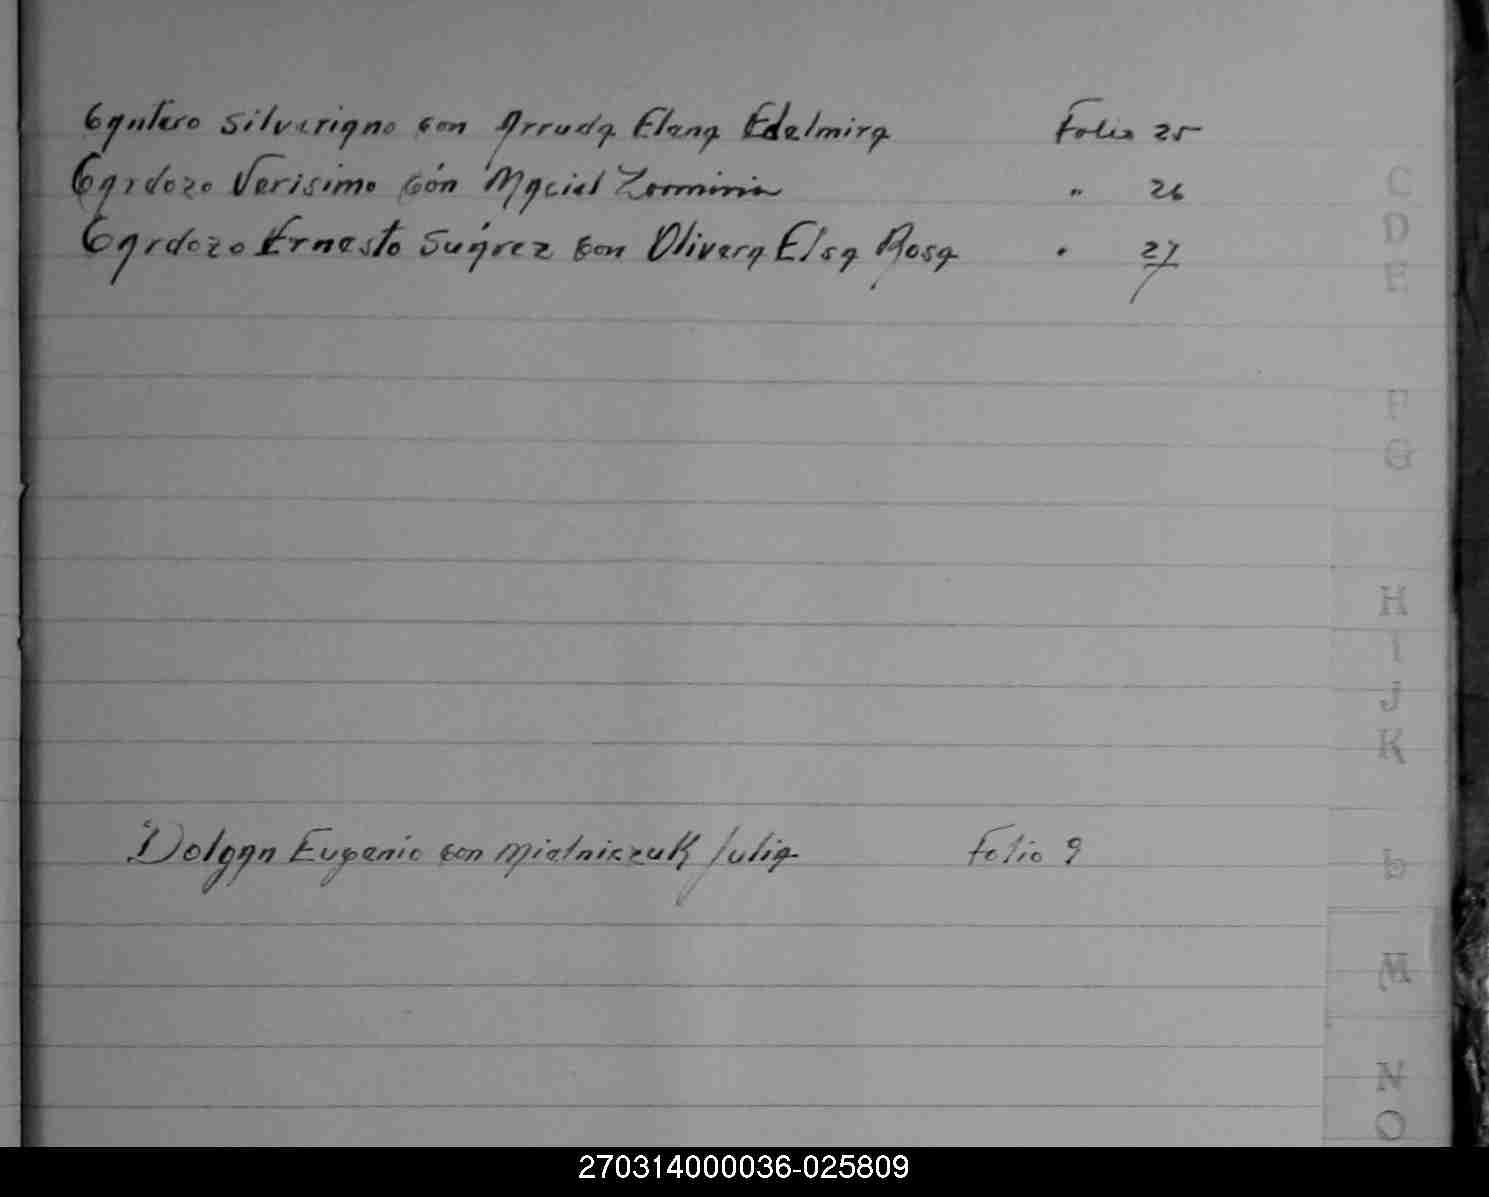 Cantero Silveriano con Arruda Elena Edelmira Folio 25
Cardozo Verisimo con Maciel Zorminia " 26
Cardozo Ernesto Suárez con Olivera Elsa Rosa " 27
C
D
E
F
G
H
I
J
K
Dolgan Eugenio con Mielniczuk Julia Folio 9
L
M
N
O
270314000036-025809